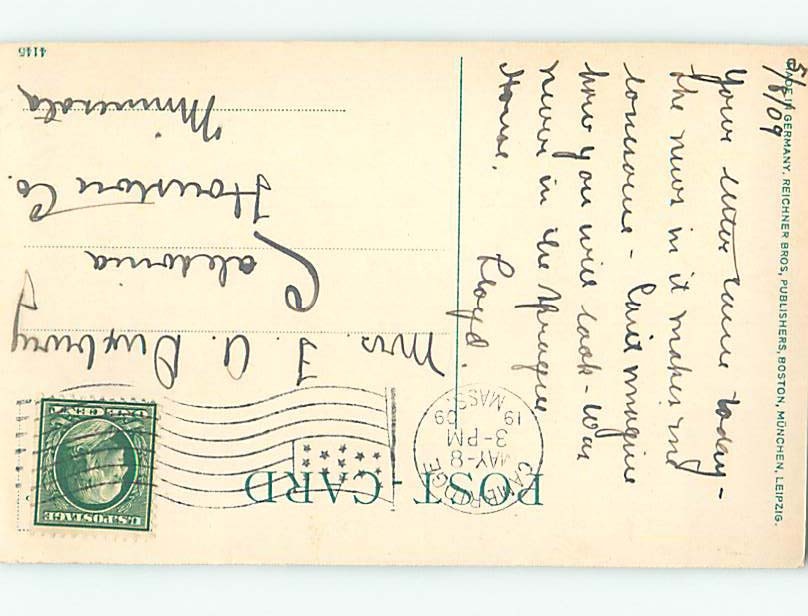 5/8/09
Your letter came today -
the news in it makes me
lonesome - Can't imagine
how you will look - Was
never in the Sprague
House.
Lloyd.
MADE IN GERMANY, REICHNER BROS, PUBLISHERS, BOSTON, MÜNCHEN, LEIPZIG.
POST-CARD
CAMBRIDGE
MAY-8
3-PM
19 09
MASS.
U.S. POSTAGE
ONE CENT
Mrs. F. A. Duxbury
Caledonia
Houston Co.
Minnesota
4145